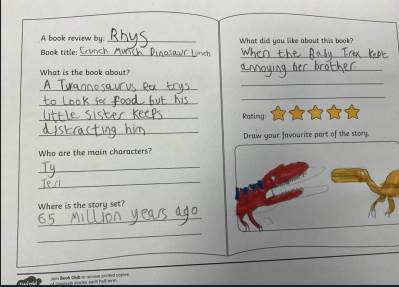 A book review by: Rhys
Book title: Crunch Munch Dinosaur Lunch
What is the book about?
A Tyrannosaurus Rex trys
to Look for food but his
little Sister Keeps
distracting him
Who are the main characters?
Ty
Teri
Where is the story set?
65 Million years ago
What did you like about this book?
When the Baby T.rex Kept
annoying her brother
Rating:
Draw your favourite part of the story.
Join Book Club to receive printed copies